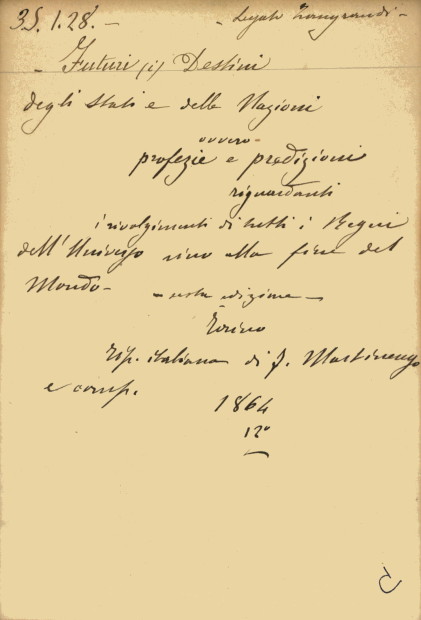 35.1.28.- - Legato Zangrandi -
- Futuri (i) Destini
degli Stati e delle Nazioni
ovvero-
profezie e predizioni
riguardanti
i rivolgimenti di tutti i Regni
dell'Universo sino alla fine del
Mondo-
- sesta edizione -
Torino
Tip. italiana di F. Martinengo
e comp.
1864
12°